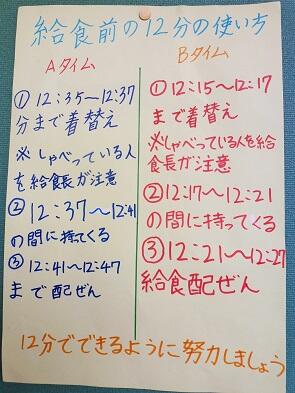 給食前の12分の使い方
Aタイム
①12:35～12:37
分まで着替え
※しゃべっている人
を給食長が注意
②12:37～12:41
の間に持てくる
③12:41～12:47
まで配ぜん
Bタイム
①12:15～12:17
まで着替え
※しゃべっている人を給
食長が注意
②12:17～12:21
の間に持ってくる
③12:21～12:27
給食配ぜん
12分でできるように努力しましょう